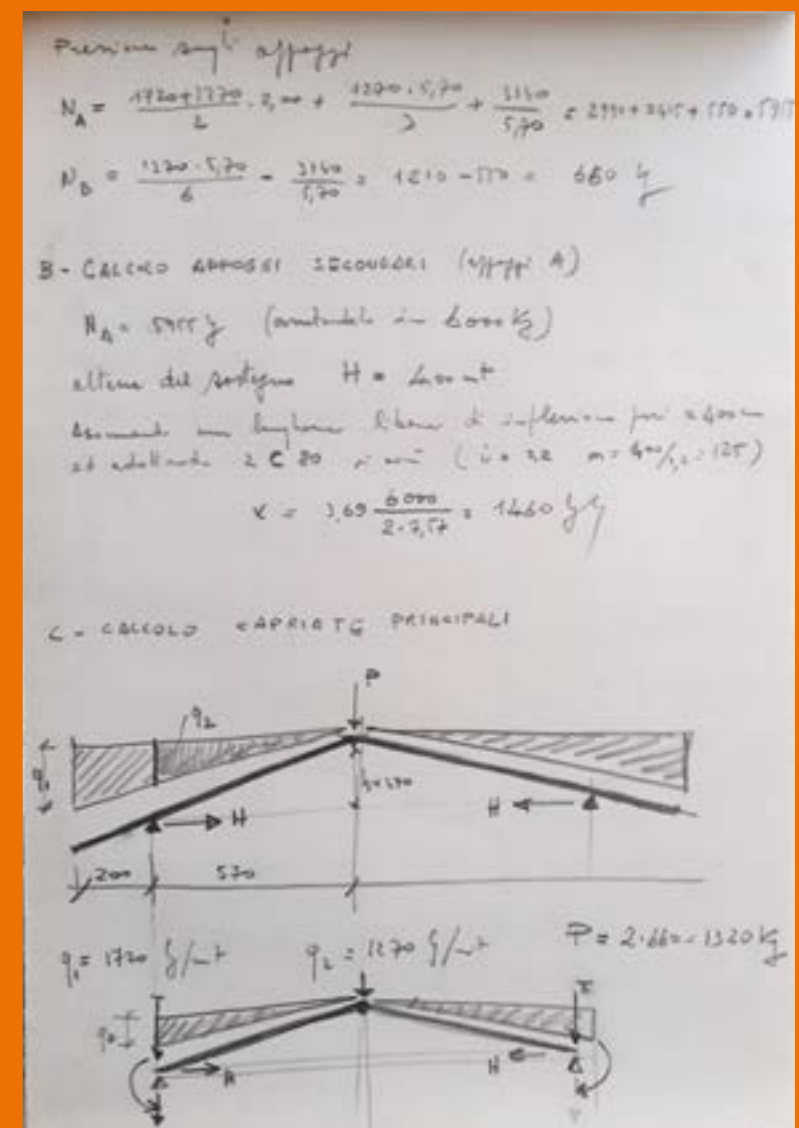 Pressione sugli appoggi
N_A = (1720+1270)/2 · 2,00 + (1270 · 5,70)/3 + 3140/5,70 = 2990 + 2415 + 550 = 5955
N_B = (1270 · 5,70)/6 - 3140/5,70 = 1210 - 550 = 660 kg
B - CALCOLO APPOGGI SECONDARI (appoggi A)
N_A = 5955 kg (arrotondato in 6000 kg)
altezza del sostegno H = 4,00 mt
Assumendo una lunghezza libera di inflessione pari a 400 cm
ed adottando 2 C 80 si avrà
= 3,69 6000/(2 · 7,57) = 1460
C - CALCOLO CAPRIATE PRINCIPALI
P
q2
q1
H
H
200
570
q1 = 1720 kg/mt
q2 = 1270 kg/mt
P = 2·660 = 1320 kg
H
H